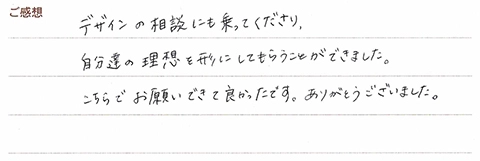 ご感想
デザインの相談にも乗ってくださり、
自分達の理想を形にしてもらうことができました。
こちらでお願いできて良かったです。ありがとうございました。